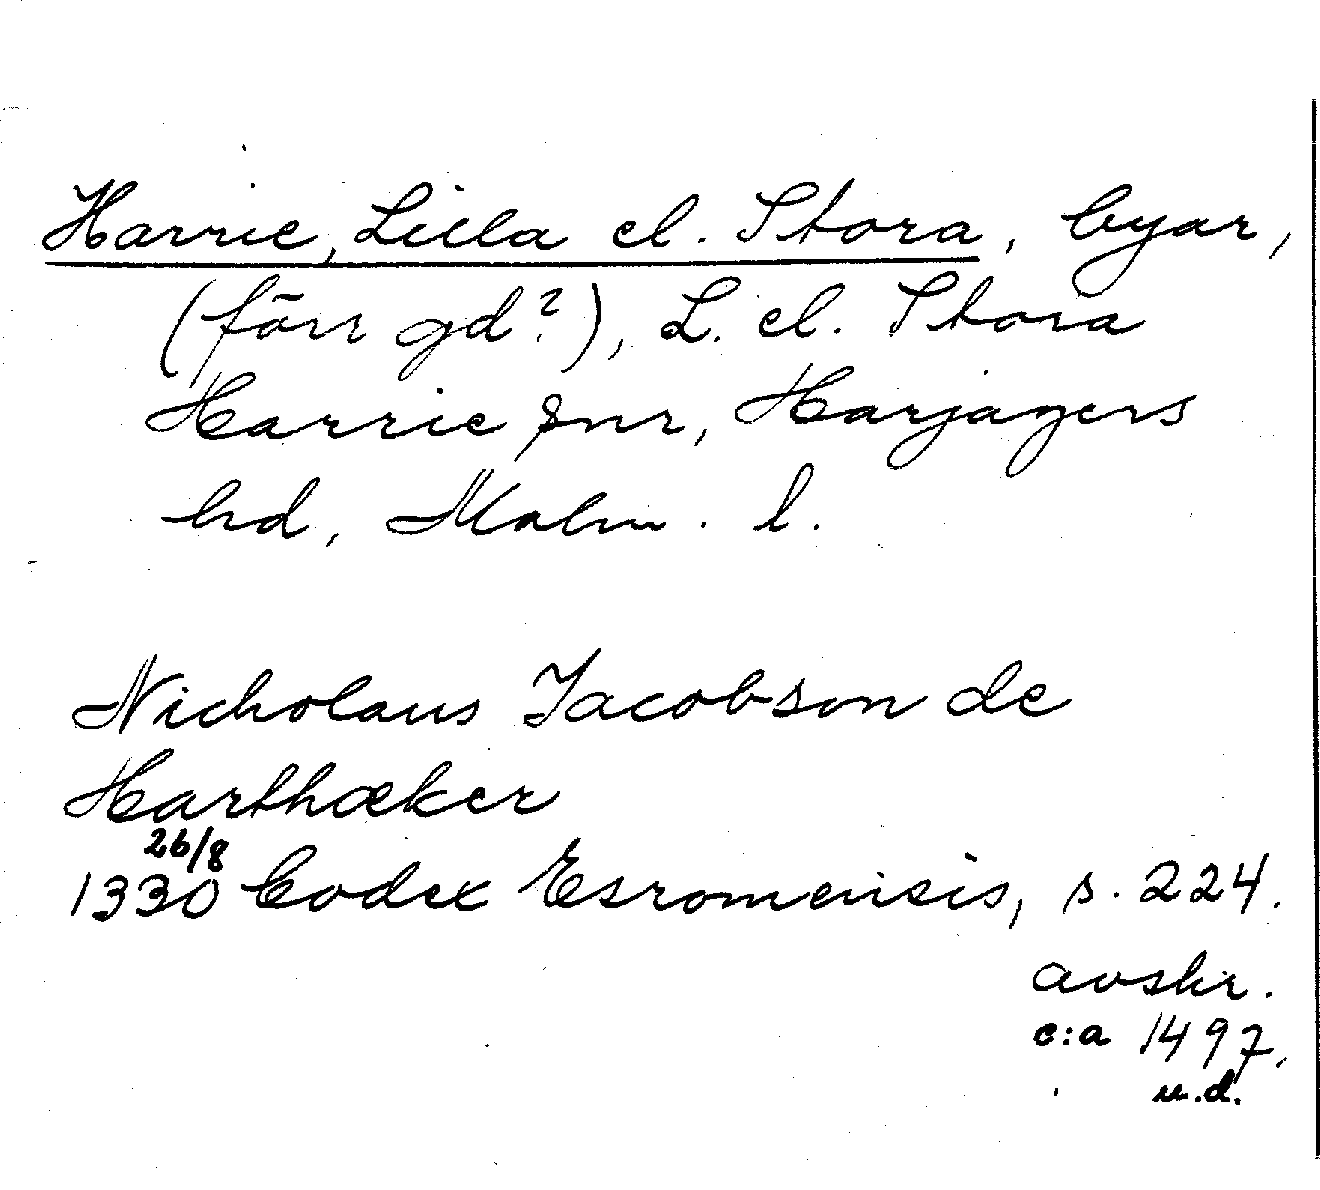 Harrie, Lilla el. Stora, byar,
(förr gd?), L. el. Stora
Harrie snr, Harjagers
hd, Malm. l.
Nicholaus Jacobson de
Harthæker
26/8
1330 Codex Esromensis, s. 224.
avskr.
c:a 1497.
u.d.